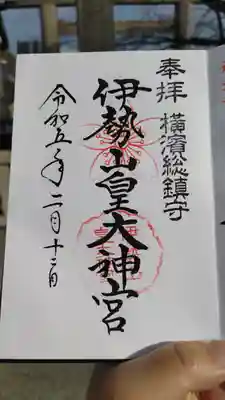 奉拝 横濱総鎮守
伊勢山皇大神宮
令和五年二月十二日